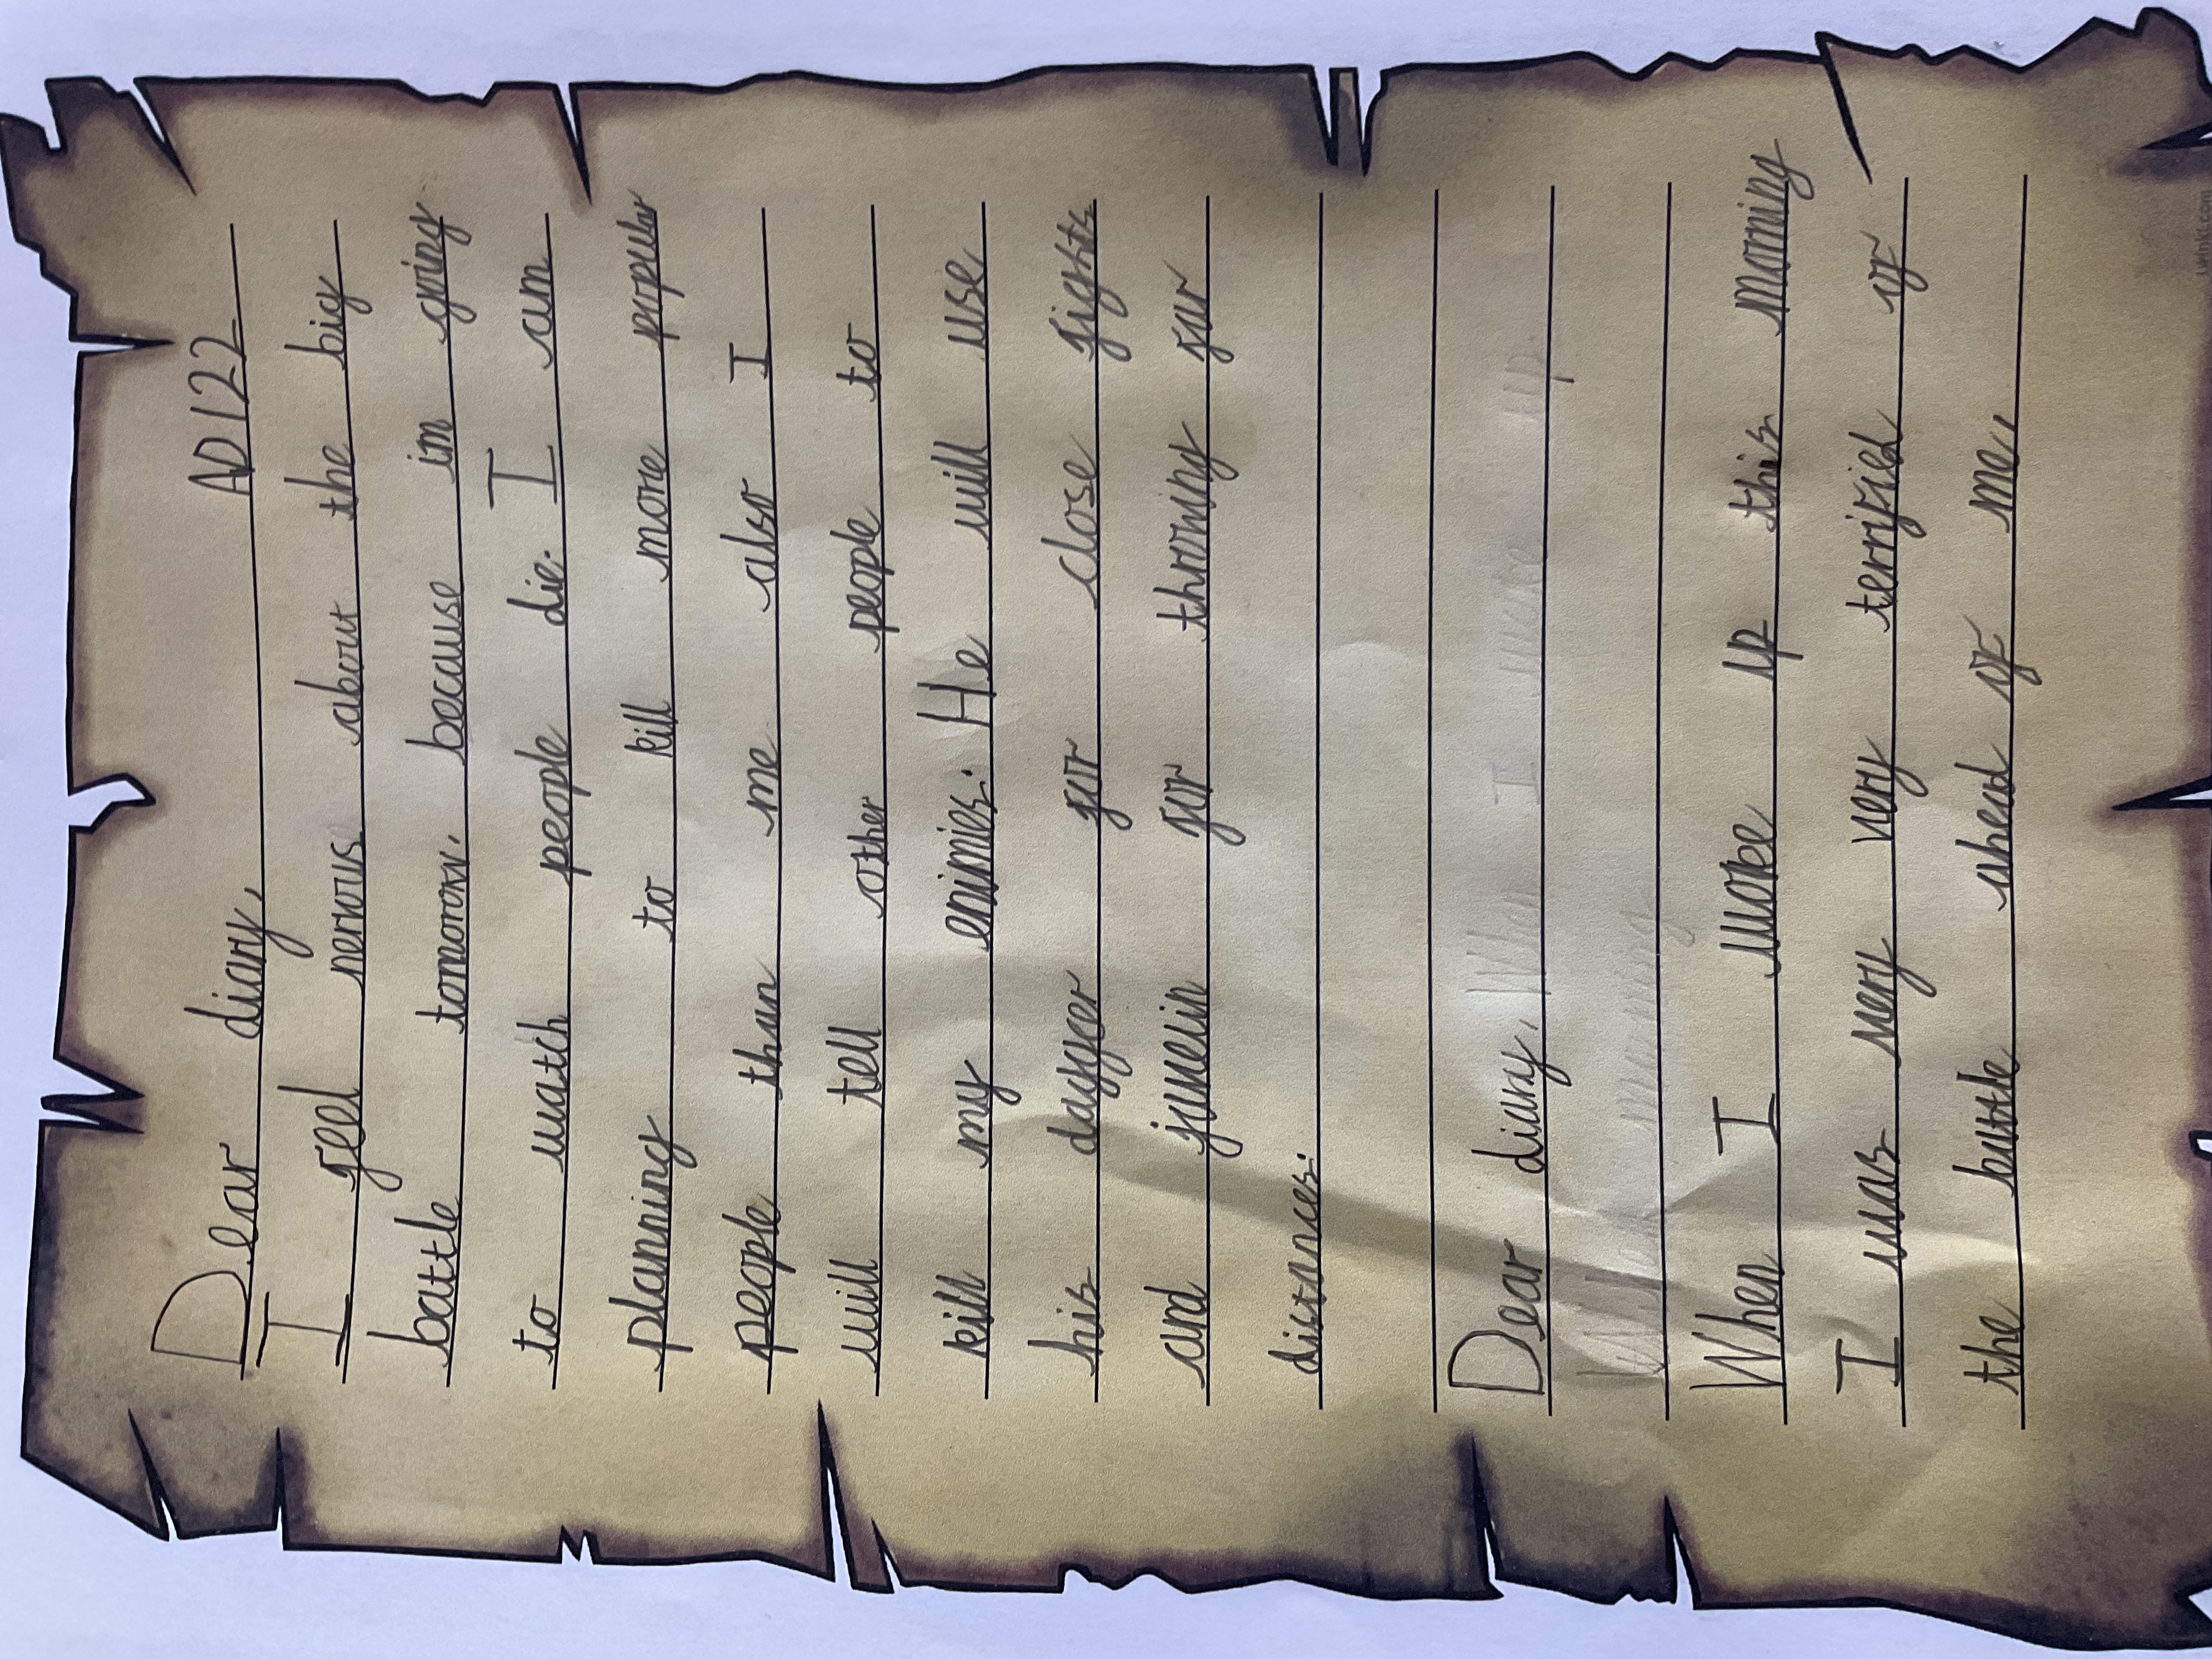 Dear diary, AD122
I feel nervous about the big
battle tomorow. because im going
to watch people die. I am
planning to kill more popular
people than me also I
will tell other people to
kill my enimies. He will use
his dagger for close fights
and javelin for throwing far
distances.
Dear diary, When I woke up
When I woke up this morning
I was very very terrified of
the battle ahead of me,